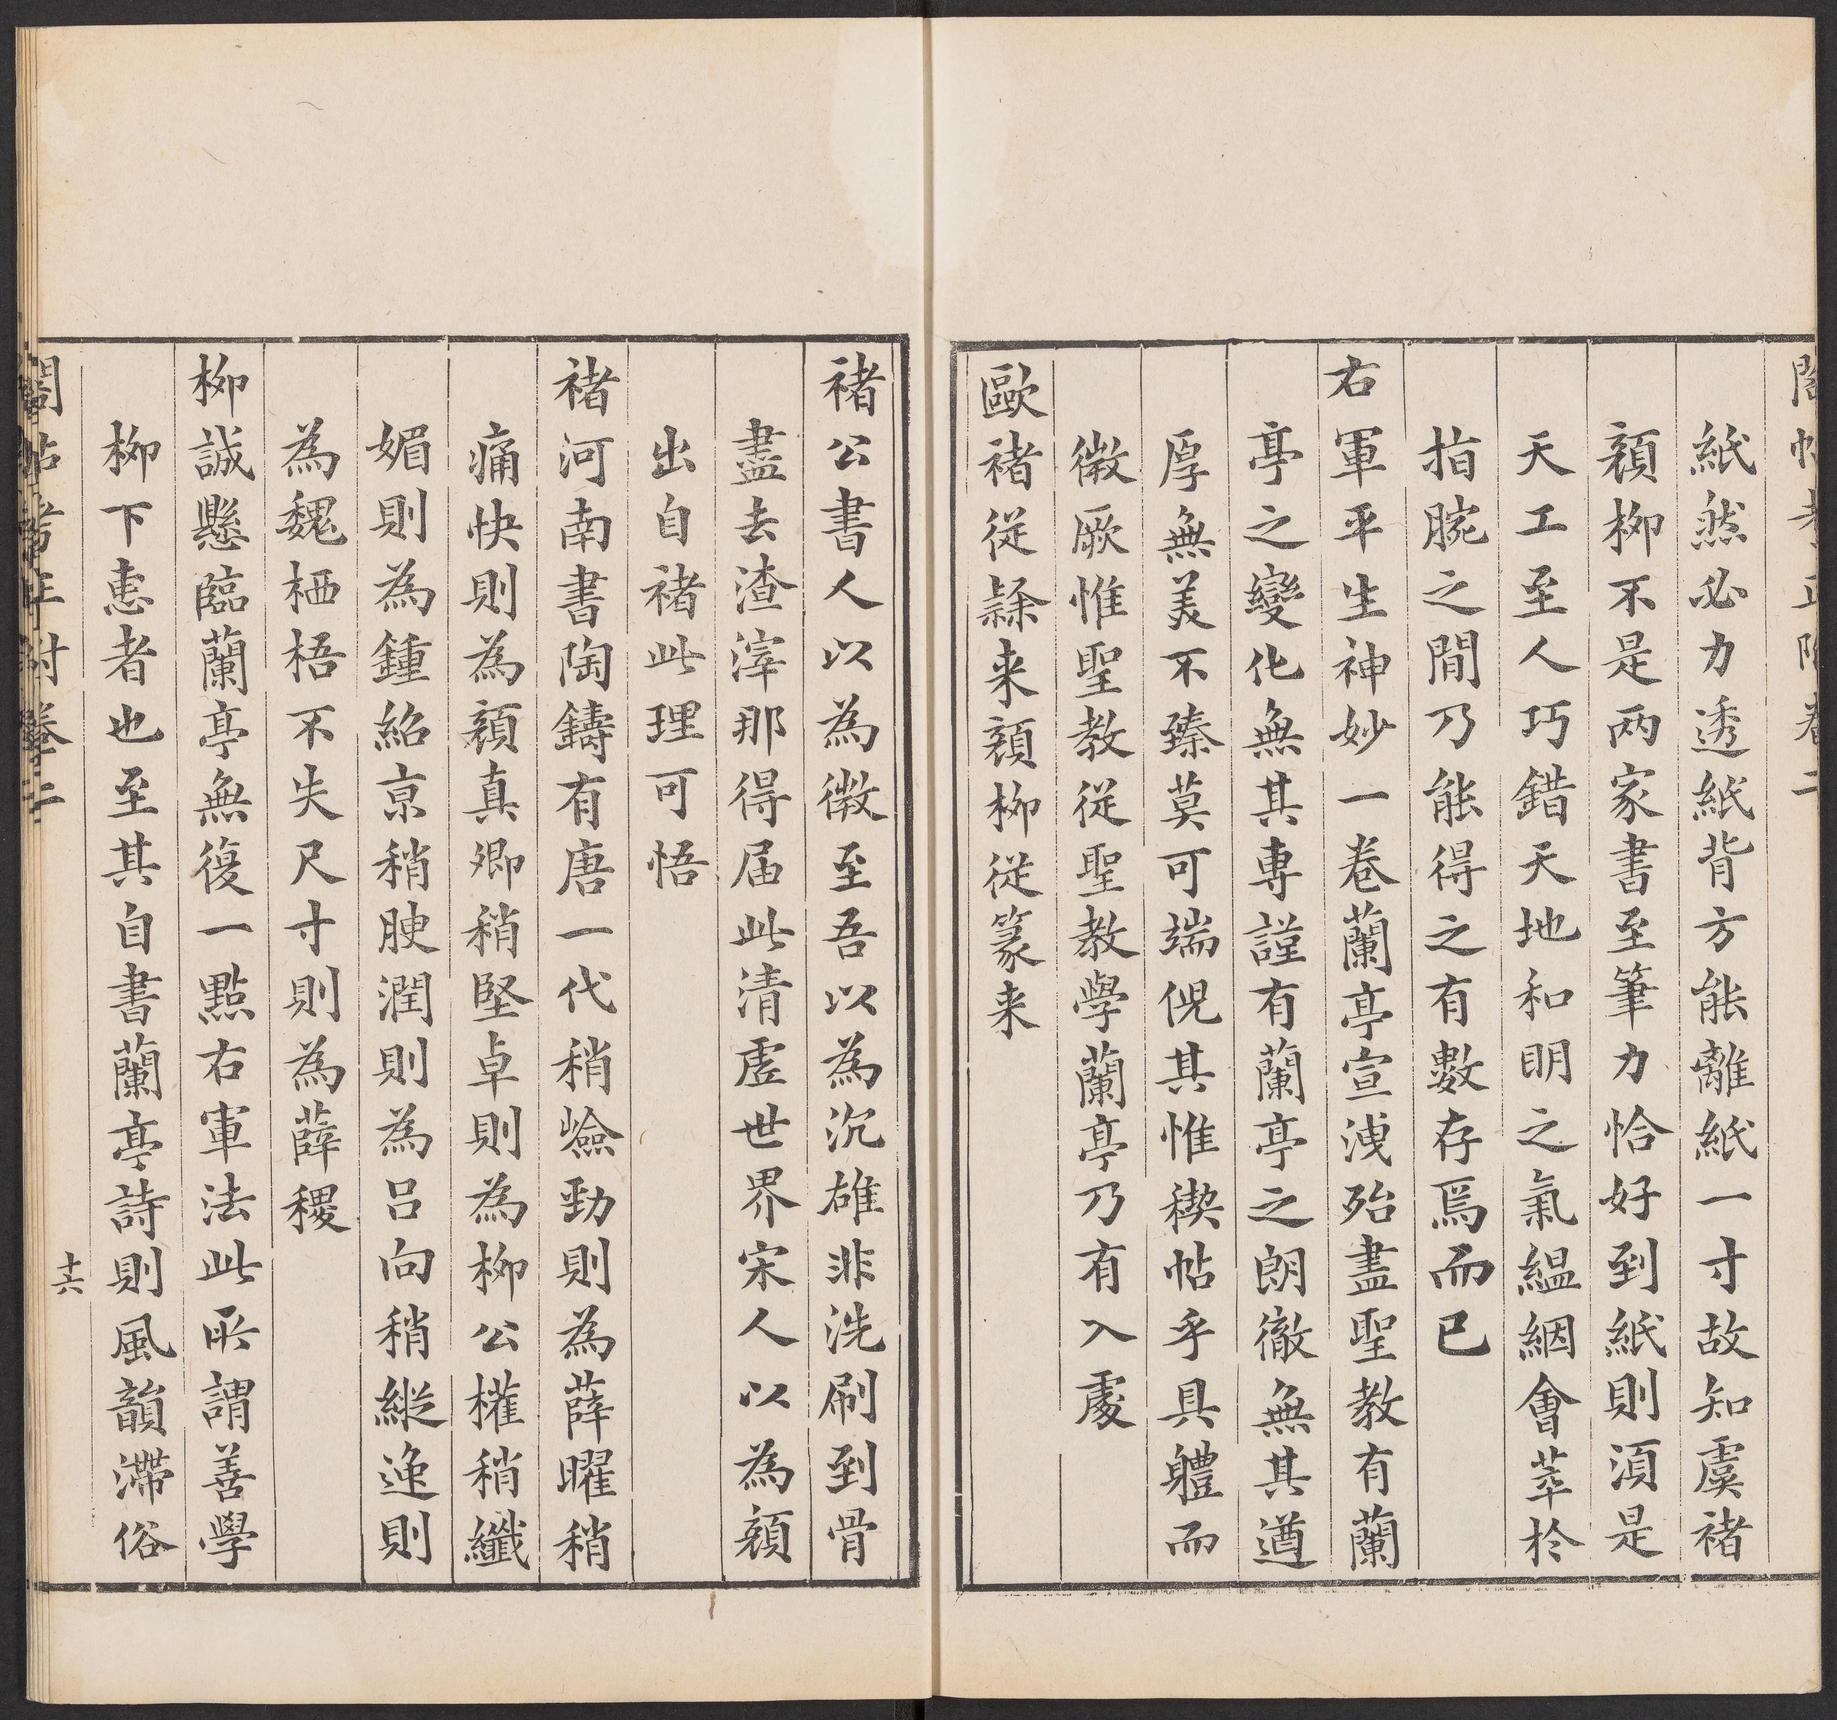 閣帖考正附卷二
紙然必力透紙背方能離紙一寸故知虞褚
顏柳不是两家書至筆力恰好到紙則湏是
天工至人巧錯天地和明之氣縕絪會萃扵
指腕之閒乃能得之有數存焉而已
右軍平生神妙一卷蘭亭宣洩殆盡聖教有蘭
亭之變化無其專謹有蘭亭之朗徹無其遒
厚無美不臻莫可端倪其惟稧帖乎具軆而
微厥惟聖教從聖教學蘭亭乃有入處
歐褚從隷来顏柳從篆来
褚公書人以為微至吾以為沉雄非洗刷到骨
盡去渣滓那得届此清虛世界宋人以為顏
出自褚此理可悟
褚河南書陶鑄有唐一代稍嶮勁則為薛曜稍
痛快則為顏真卿稍堅卓則為柳公權稍纖
媚則為鍾紹京稍腴潤則為呂向稍縱逸則
為魏栖梧不失尺寸則為薛稷
柳誠懸臨蘭亭無復一點右軍法此所謂善學
柳下惠者也至其自書蘭亭詩則風韻滯俗
閣帖考正附卷二
十六